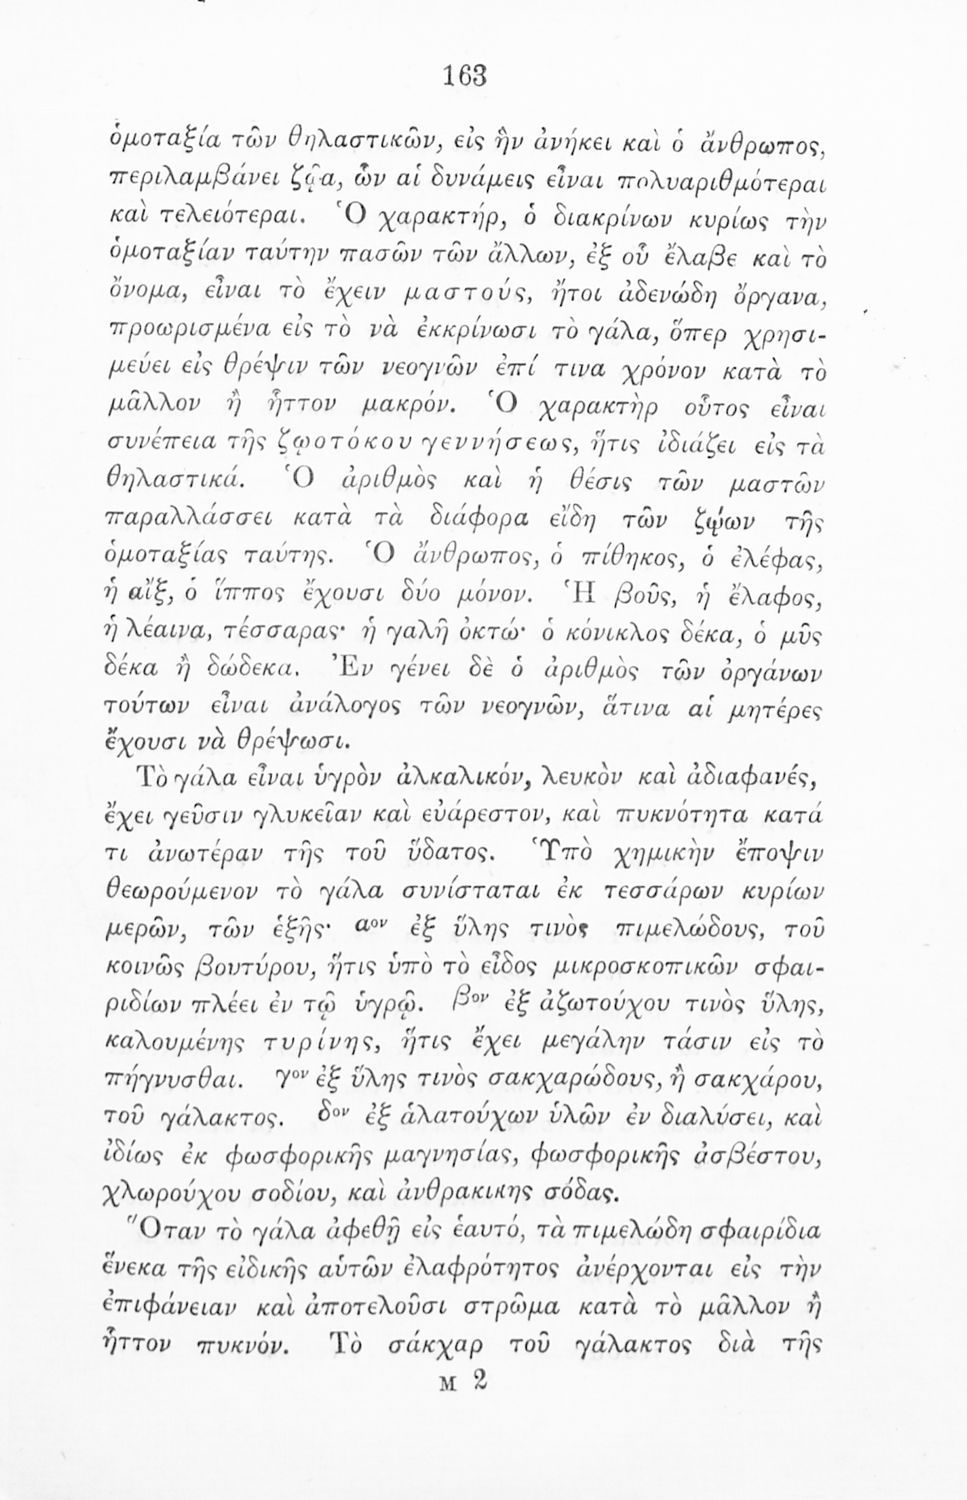 163
ὁμοταξία τῶν θηλαστικῶν, εἰς ἣν ἀνήκει καὶ ὁ ἄνθρωπος,
περιλαμβάνει ζῷα, ὧν αἱ δυνάμεις εἶναι πολυαριθμότεραι
καὶ τελειότεραι. Ὁ χαρακτήρ, ὁ διακρίνων κυρίως τὴν
ὁμοταξίαν ταύτην πασῶν τῶν ἄλλων, ἐξ οὗ ἔλαβε καὶ τὸ
ὄνομα, εἶναι τὸ ἔχειν μαστούς, ἤτοι ἀδενώδη ὄργανα,
προωρισμένα εἰς τὸ νὰ ἐκκρίνωσι τὸ γάλα, ὅπερ χρησι-
μεύει εἰς θρέψιν τῶν νεογνῶν ἐπί τινα χρόνον κατὰ τὸ
μᾶλλον ἢ ἧττον μακρόν. Ὁ χαρακτὴρ οὗτος εἶναι
συνέπεια τῆς ζῳοτόκου γεννήσεως, ἥτις ἰδιάζει εἰς τὰ
θηλαστικά. Ὁ ἀριθμὸς καὶ ἡ θέσις τῶν μαστῶν
παραλλάσσει κατὰ τὰ διάφορα εἴδη τῶν ζῴων τῆς
ὁμοταξίας ταύτης. Ὁ ἄνθρωπος, ὁ πίθηκος, ὁ ἐλέφας,
ἡ αἴξ, ὁ ἵππος ἔχουσι δύο μόνον. Ἡ βοῦς, ἡ ἔλαφος,
ἡ λέαινα, τέσσαρας· ἡ γαλῆ ὀκτώ· ὁ κόνικλος δέκα, ὁ μῦς
δέκα ἢ δώδεκα. Ἐν γένει δὲ ὁ ἀριθμὸς τῶν ὀργάνων
τούτων εἶναι ἀνάλογος τῶν νεογνῶν, ἅτινα αἱ μητέρες
ἔχουσι νὰ θρέψωσι.
Τὸ γάλα εἶναι ὑγρὸν ἀλκαλικόν, λευκὸν καὶ ἀδιαφανές,
ἔχει γεῦσιν γλυκεῖαν καὶ εὐάρεστον, καὶ πυκνότητα κατά
τι ἀνωτέραν τῆς τοῦ ὕδατος. Ὑπὸ χημικὴν ἔποψιν
θεωρούμενον τὸ γάλα συνίσταται ἐκ τεσσάρων κυρίων
μερῶν, τῶν ἑξῆς· αον ἐξ ὕλης τινὸς πιμελώδους, τοῦ
κοινῶς βουτύρου, ἥτις ὑπὸ τὸ εἶδος μικροσκοπικῶν σφαι-
ριδίων πλέει ἐν τῷ ὑγρῷ. βον ἐξ ἀζωτούχου τινὸς ὕλης,
καλουμένης τυρίνης, ἥτις ἔχει μεγάλην τάσιν εἰς τὸ
πήγνυσθαι. γον ἐξ ὕλης τινὸς σακχαρώδους, ἢ σακχάρου,
τοῦ γάλακτος. δον ἐξ ἁλατούχων ὑλῶν ἐν διαλύσει, καὶ
ἰδίως ἐκ φωσφορικῆς μαγνησίας, φωσφορικῆς ἀσβέστου,
χλωρούχου σοδίου, καὶ ἀνθρακικης σόδας.
Ὅταν τὸ γάλα ἀφεθῇ εἰς ἑαυτό, τὰ πιμελώδη σφαιρίδια
ἕνεκα τῆς εἰδικῆς αὑτῶν ἐλαφρότητος ἀνέρχονται εἰς τὴν
ἐπιφάνειαν καὶ ἀποτελοῦσι στρῶμα κατὰ τὸ μᾶλλον ἢ
ἧττον πυκνόν. Τὸ σάκχαρ τοῦ γάλακτος διὰ τῆς
M 2